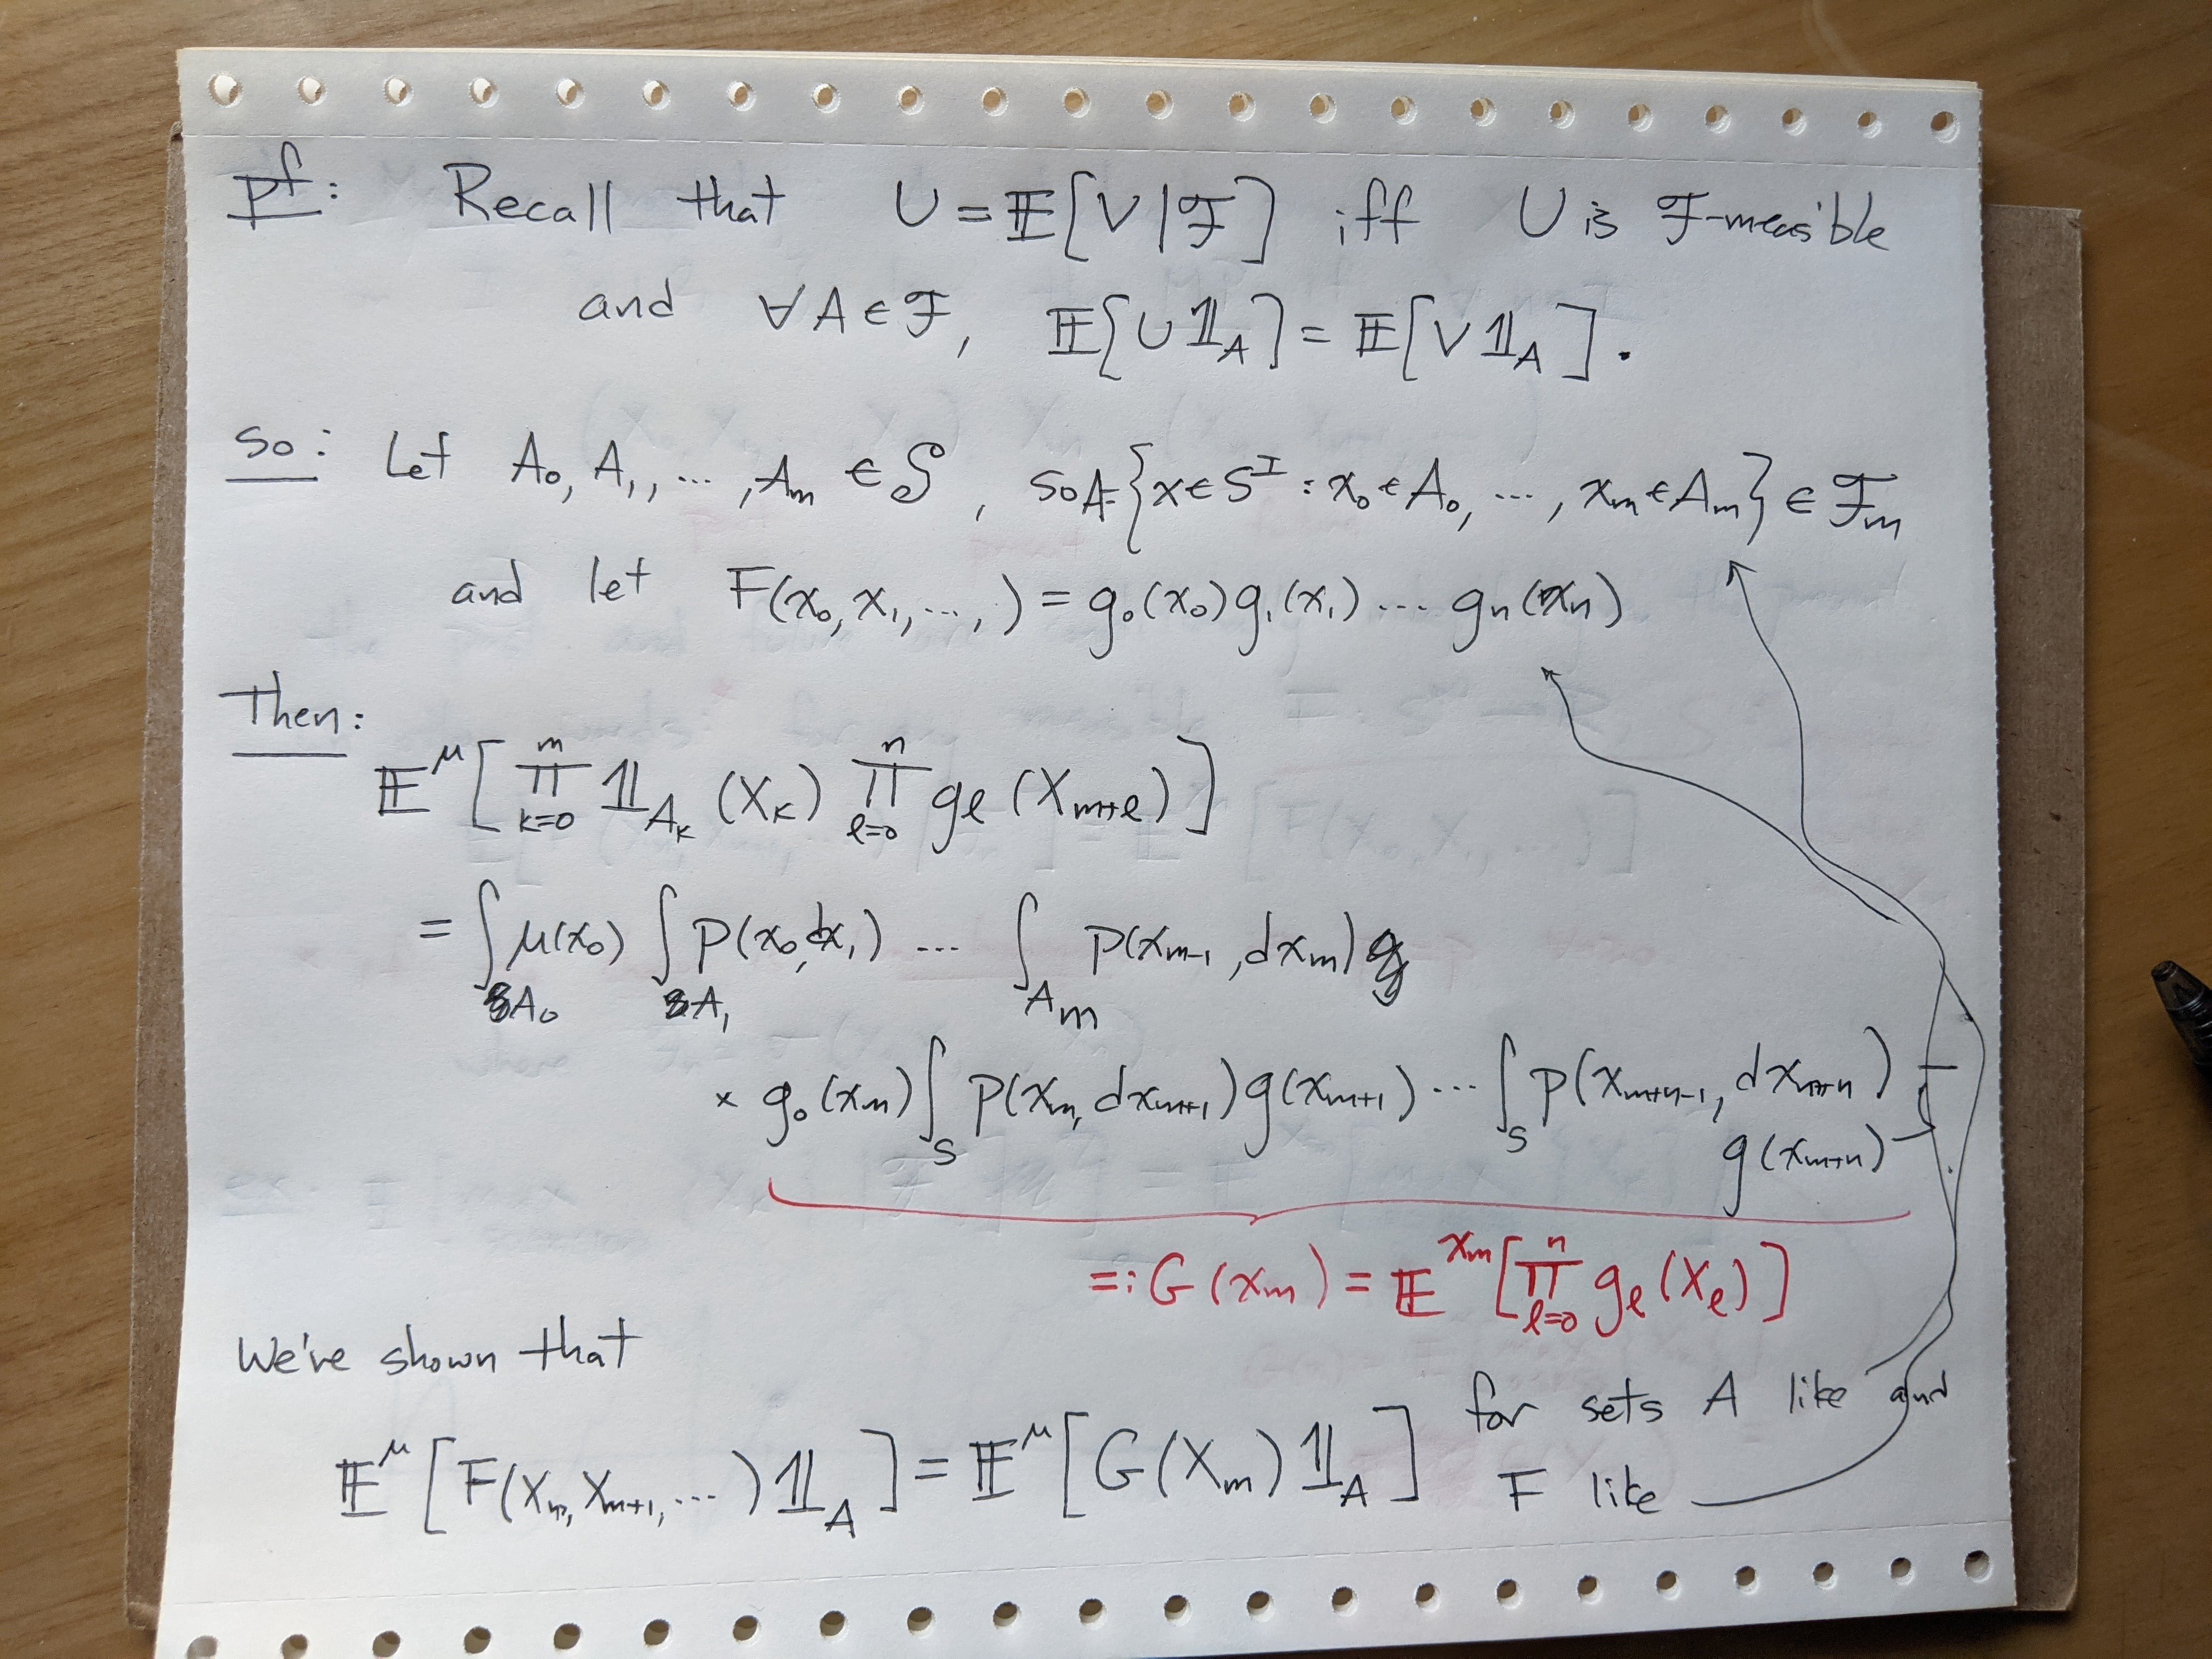 pf: Recall that U = 𝔼[V | ℱ] iff U is ℱ-meas'ble
and ∀ A ∈ ℱ, 𝔼[U 𝟙_A] = 𝔼[V 𝟙_A].
So: Let A₀, A₁, ..., A_m ∈ 𝒮, so A = {x ∈ S^I : x₀ ∈ A₀, ..., x_m ∈ A_m} ∈ ℱ_m
and let F(x₀, x₁, ..., ) = g₀(x₀) g₁(x₁) ... g_n(x_n)
Then:
𝔼^μ [ ∏_{k=0}^{m} 𝟙_{A_k}(X_k) ∏_{ℓ=0}^{n} g_ℓ(X_{m+ℓ}) ]
= ∫_{A₀} μ(x₀) ∫_{A₁} p(x₀, dx₁) ... ∫_{A_m} p(x_{m-1}, dx_m)
× g₀(x_m) ∫_S p(x_m, dx_{m+1}) g(x_{m+1}) ... ∫_S p(x_{m+n-1}, dx_{m+n})
g(x_{m+n})
=: G(x_m) = 𝔼^{x_m} [ ∏_{ℓ=0}^{n} g_ℓ(X_ℓ) ]
We've shown that
𝔼^μ [F(X_m, X_{m+1}, ...) 𝟙_A] = 𝔼^μ [G(X_m) 𝟙_A] for sets A like and
F like